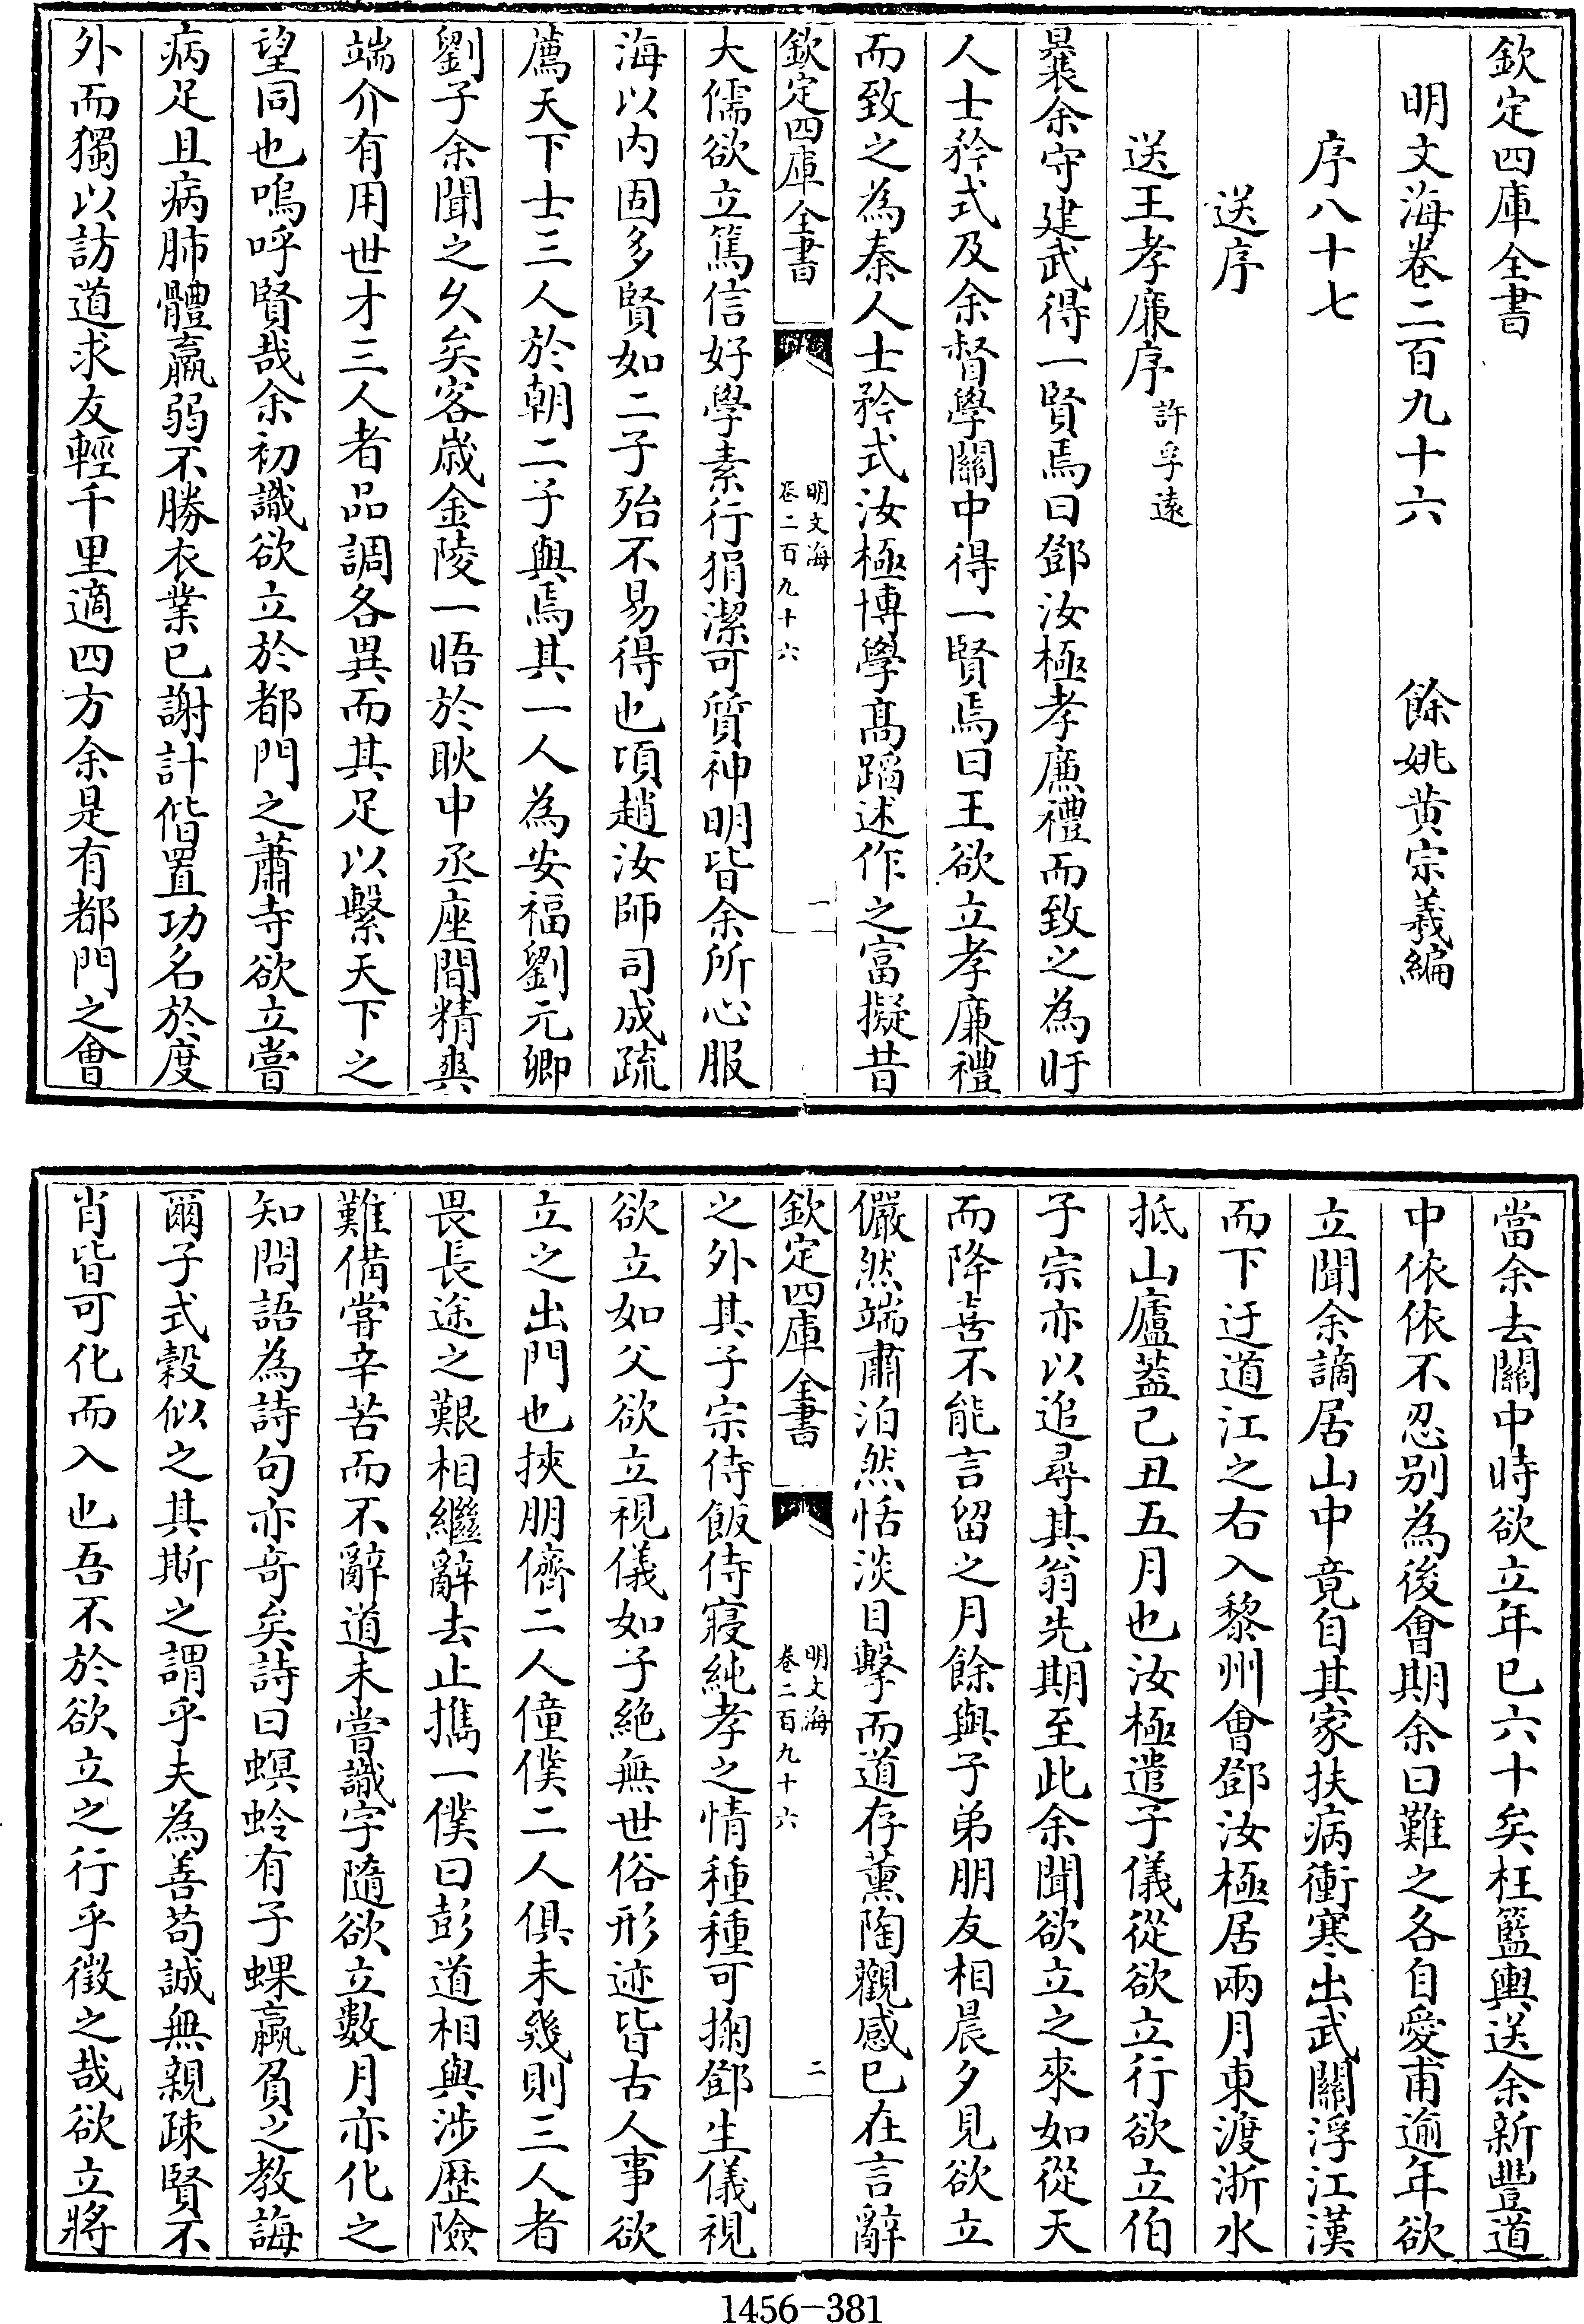 欽定四庫全書
明文海卷二百九十六　餘姚黄宗羲編
序八十七
送序
送王孝廉序 許孚遠
曩余守建武得一賢焉曰鄧汝極孝廉禮而致之為盱
人士矜式及余督學關中得一賢焉曰王欲立孝廉禮
而致之為秦人士矜式汝極博學髙蹈述作之富擬昔
欽定四庫全書　明文海卷二百九十六　一
大儒欲立篤信好學素行狷潔可質神明皆余所心服
海以内固多賢如二子殆不易得也頃趙汝師司成疏
薦天下士三人於朝二子與焉其一人為安福劉元卿
劉子余聞之久矣客歳金陵一晤於耿中丞座間精爽
端介有用世才三人者品調各異而其足以繫天下之
望同也嗚呼賢哉余初識欲立於都門之蕭寺欲立嘗
病足且病肺體羸弱不勝衣業已謝計偕置功名於度
外而獨以訪道求友輕千里適四方余是有都門之會
當余去關中時欲立年已六十矣枉籃輿送余新豐道
中依依不忍别為後會期余曰難之各自愛甫逾年欲
立聞余謫居山中竟自其家扶病衝寒出武關浮江漢
而下迂道江之右入黎州會鄧汝極居兩月東渡浙水
抵山廬葢己丑五月也汝極遣子儀從欲立行欲立伯
子宗亦以追尋其翁先期至此余聞欲立之來如從天
而降喜不能言留之月餘與子弟朋友相晨夕見欲立
儼然端肅泊然恬淡目擊而道存薰陶觀感已在言辭
欽定四庫全書　明文海卷二百九十六　二
之外其子宗侍飯侍寢純孝之情種種可掬鄧生儀視
欲立如父欲立視儀如子絶無世俗形迹皆古人事欲
立之出門也挾朋儕二人僮僕二人俱未幾則三人者
畏長途之艱相繼辭去止擕一僕曰彭道相與涉歴險
難備嘗辛苦而不辭道未嘗識字隨欲立數月亦化之
知問語為詩句亦奇矣詩曰螟蛉有子蜾蠃負之教誨
爾子式榖似之其斯之謂乎夫為善苟誠無親疎賢不
肖皆可化而入也吾不於欲立之行乎徵之哉欲立將
1456-381